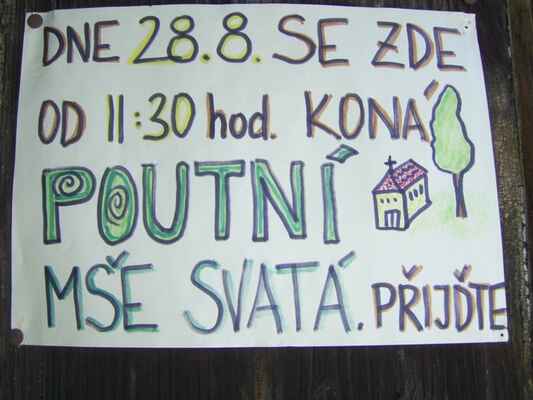 DNE 28.8. SE ZDE
OD 11:30 hod. KONÁ
POUTNÍ
MŠE SVATÁ. PŘIJĎTE